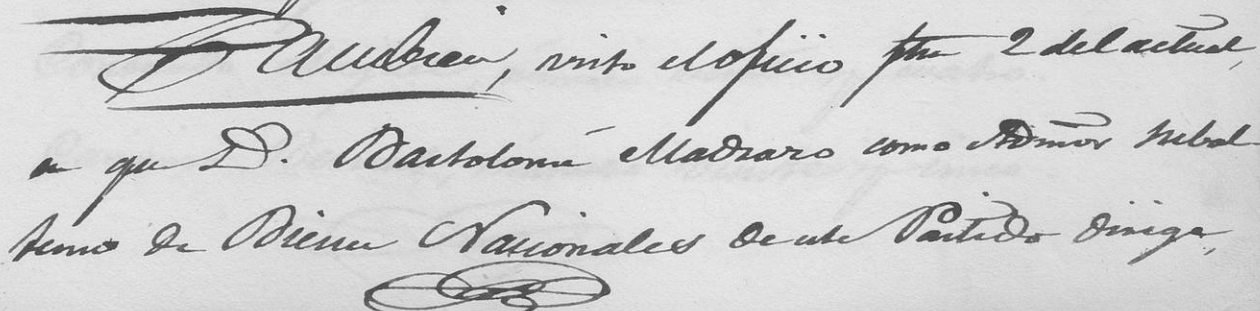 Tambien, visto el oficio fha 2 del actual,
en que D. Bartolomé Madrazo como Admōr subal
terno de Bienes Nacionales de este Partido dirige,